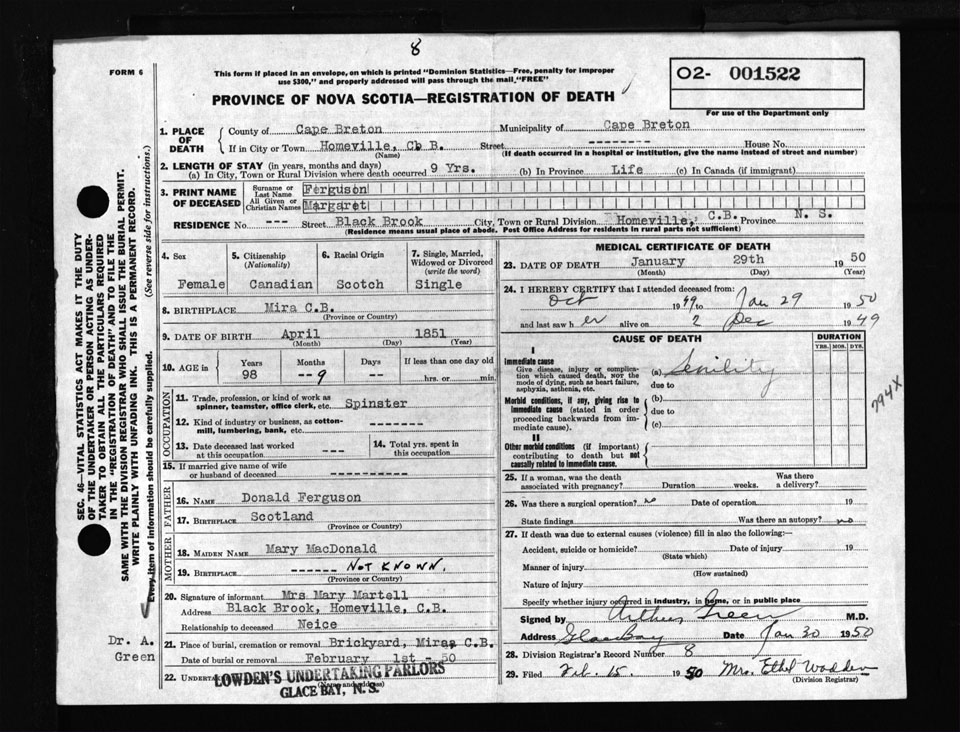 8
FORM 6
This form if placed in an envelope, on which is printed "Dominion Statistics—Free, penalty for improper
use $300," and properly addressed will pass through the mail "FREE"
O2- 001522
For use of the Department only
PROVINCE OF NOVA SCOTIA—REGISTRATION OF DEATH
1. PLACE OF DEATH
County of Cape Breton Municipality of Cape Breton
If in City or Town Homeville, C. B. Street -------- House No.
(Name) (If death occurred in a hospital or institution, give the name instead of street and number)
2. LENGTH OF STAY (in years, months and days)
(a) In City, Town or Rural Division where death occurred 9 Yrs. (b) In Province Life (c) In Canada (if immigrant)
3. PRINT NAME OF DECEASED
Surname or Last Name Ferguson
All Given or Christian Names Margaret
RESIDENCE No. --- Street Black Brook City, Town or Rural Division Homeville, C.B. Province N. S.
(Residence means usual place of abode. Post Office Address for residents in rural parts not sufficient)
4. Sex
Female
5. Citizenship
(Nationality)
Canadian
6. Racial Origin
Scotch
7. Single, Married,
Widowed or Divorced
(write the word)
Single
8. BIRTHPLACE Mira C.B.
(Province or Country)
9. DATE OF BIRTH April 1851
(Month) (Day) (Year)
10. AGE in Years Months Days If less than one day old
98 --9 -- hrs. or min.
OCCUPATION
11. Trade, profession, or kind of work as
spinner, teamster, office clerk, etc. Spinster
12. Kind of industry or business, as cotton-
mill, lumbering, bank, etc. --------
13. Date deceased last worked
at this occupation ---
14. Total yrs. spent in
this occupation
15. If married give name of wife
or husband of deceased -----------
FATHER
16. NAME Donald Ferguson
17. BIRTHPLACE Scotland
(Province or Country)
MOTHER
18. MAIDEN NAME Mary MacDonald
19. BIRTHPLACE ------ NOT KNOWN.
(Province or Country)
20. Signature of informant Mrs Mary Martell
Address Black Brook, Homeville, C.B.
Relationship to deceased Neice
21. Place of burial, cremation or removal Brickyard, Mira, C.B.
Date of burial or removal February 1st - 50
22. UNDERTAKER
LOWDEN'S UNDERTAKING PARLORS
(Name and address)
GLACE BAY, N. S.
MEDICAL CERTIFICATE OF DEATH
23. DATE OF DEATH January 29th 1950
(Month) (Day) (Year)
24. I HEREBY CERTIFY that I attended deceased from:
Oct 1949 to Jan 29 1950
and last saw her alive on 2 Dec 1949
CAUSE OF DEATH
DURATION
YRS. MOS. DYS.
I
Immediate cause
Give disease, injury or complica-
tion which caused death, NOT the
mode of dying, such as heart failure,
asphyxia, asthenia, etc.
(a) Senility
due to
Morbid conditions, if any, giving rise to
immediate cause (stated in order
proceeding backwards from
immediate cause).
(b)
due to
(c)
II
Other morbid conditions (if important)
contributing to death but not
causally related to immediate cause.
794X
25. If a woman, was the death
associated with pregnancy? Duration weeks. Was there
a delivery?
26. Was there a surgical operation? no Date of operation 19
State findings Was there an autopsy? no
27. If death was due to external causes (violence) fill in also the following:—
Accident, suicide or homicide? Date of injury 19
(State which)
Manner of injury
(How sustained)
Nature of injury
Specify whether injury occurred in industry, in home, or in public place
Signed by Arthur Green M.D.
Address Glace Bay Date Jan 30 1950
28. Division Registrar's Record Number 8
29. Filed Feb. 15. 1950 Mrs. Ethel Wadden
(Division Registrar)
SEC. 46—VITAL STATISTICS ACT MAKES IT THE DUTY
OF THE UNDERTAKER OR PERSON ACTING AS UNDER-
TAKER TO OBTAIN ALL THE PARTICULARS REQUIRED
IN THE "REGISTRATION OF DEATH" AND TO FILE THE
SAME WITH THE DIVISION REGISTRAR WHO SHALL ISSUE THE BURIAL PERMIT.
WRITE PLAINLY WITH UNFADING INK. THIS IS A PERMANENT RECORD.
Every item of information should be carefully supplied. (See reverse side for instructions.)
Dr. A.
Green